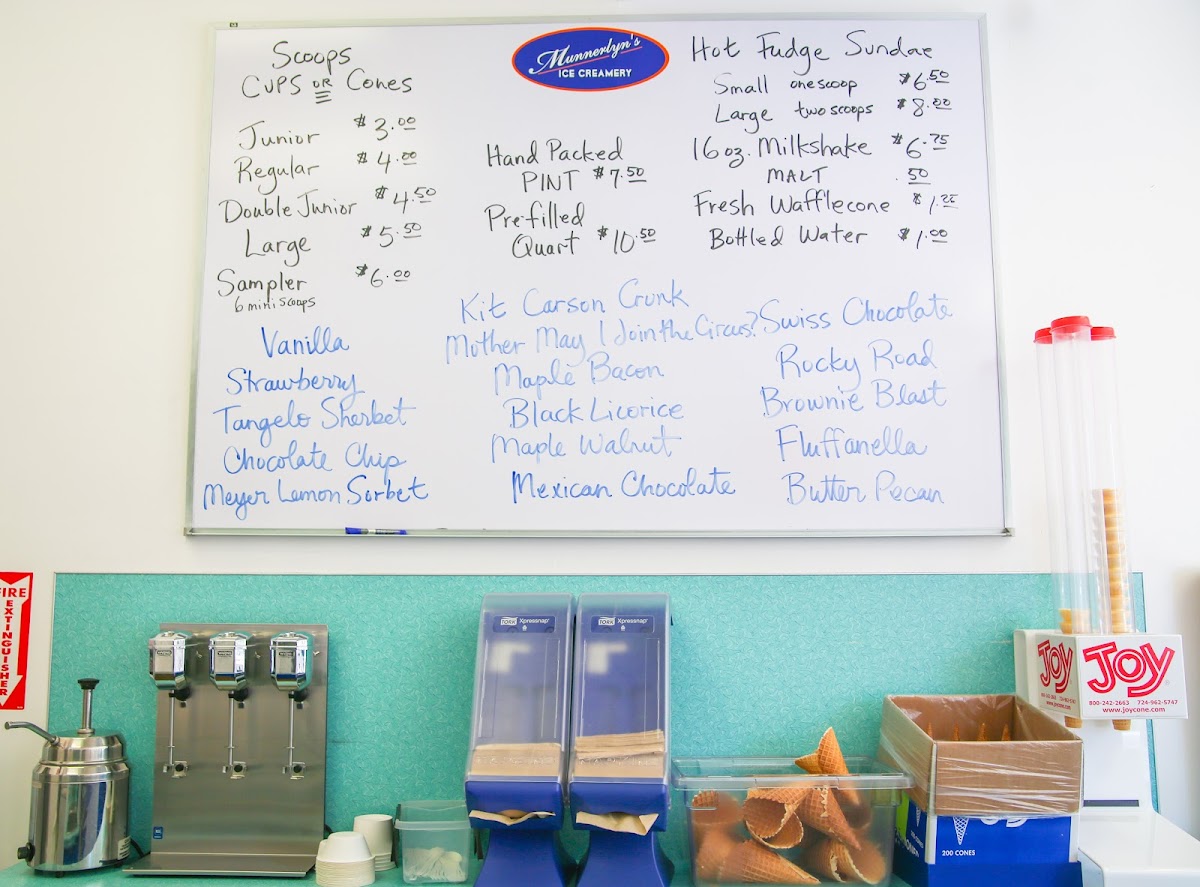 Munnerlyn's
ICE CREAMERY
Scoops
CUPS OR Cones
Junior $3.00
Regular $4.00
Double Junior $4.50
Large $5.50
Sampler $6.00
6 mini scoops
Hand Packed
PINT $7.50
Pre-filled
Quart $10.50
Hot Fudge Sundae
Small one scoop $6.50
Large two scoops $8.00
16 oz. Milkshake $6.75
MALT .50
Fresh Wafflecone $1.25
Bottled Water $1.00
Vanilla
Strawberry
Tangelo Sherbet
Chocolate Chip
Meyer Lemon Sorbet
Kit Carson Crunk
Mother May I Join the Circus?
Maple Bacon
Black Licorice
Maple Walnut
Mexican Chocolate
Swiss Chocolate
Rocky Road
Brownie Blast
Fluffanella
Butter Pecan
FIRE
EXTINGUISHER
TORK Xpressnap
TORK Xpressnap
JOY
800-242-2663 724-962-5747
www.joycone.com
JOY
www.joycone.com
200 CONES